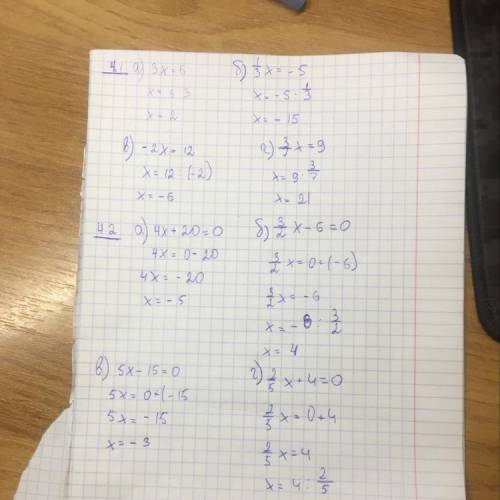 4.1 а) 3x = 6
x = 6 : 3
x = 2
б) 1/3 x = -5
x = -5 : 1/3
x = -15
в) -2x = 12
x = 12 : (-2)
x = -6
г) 3/7 x = 9
x = 9 : 3/7
x = 21
4.2 а) 4x + 20 = 0
4x = 0 - 20
4x = -20
x = -5
б) 3/2 x - 6 = 0
3/2 x = 0 + (-6)
3/2 x = -6
x = -6 : 3/2
x = 4
в) 5x - 15 = 0
5x = 0 + (-15
5x = -15
x = -3
г) 2/5 x + 4 = 0
2/5 x = 0 + 4
2/5 x = 4
x = 4 : 2/5